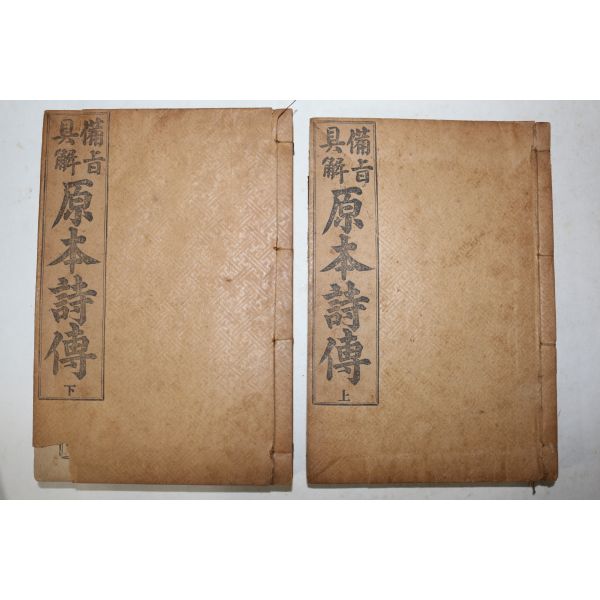 備旨
具解
原本詩傳
上
備旨
具解
原本詩傳
下